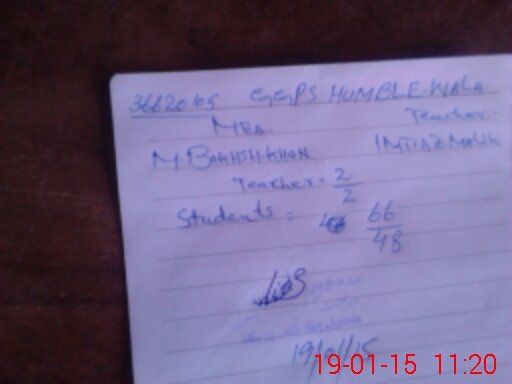 36620105 GGPS HUMBLE-WALA
MEA Teacher.
M. BAKHSH KHAN IMTIAZ MALIK
Teacher = 2/2
Students = 66/48
19/01/15
19-01-15 11:20